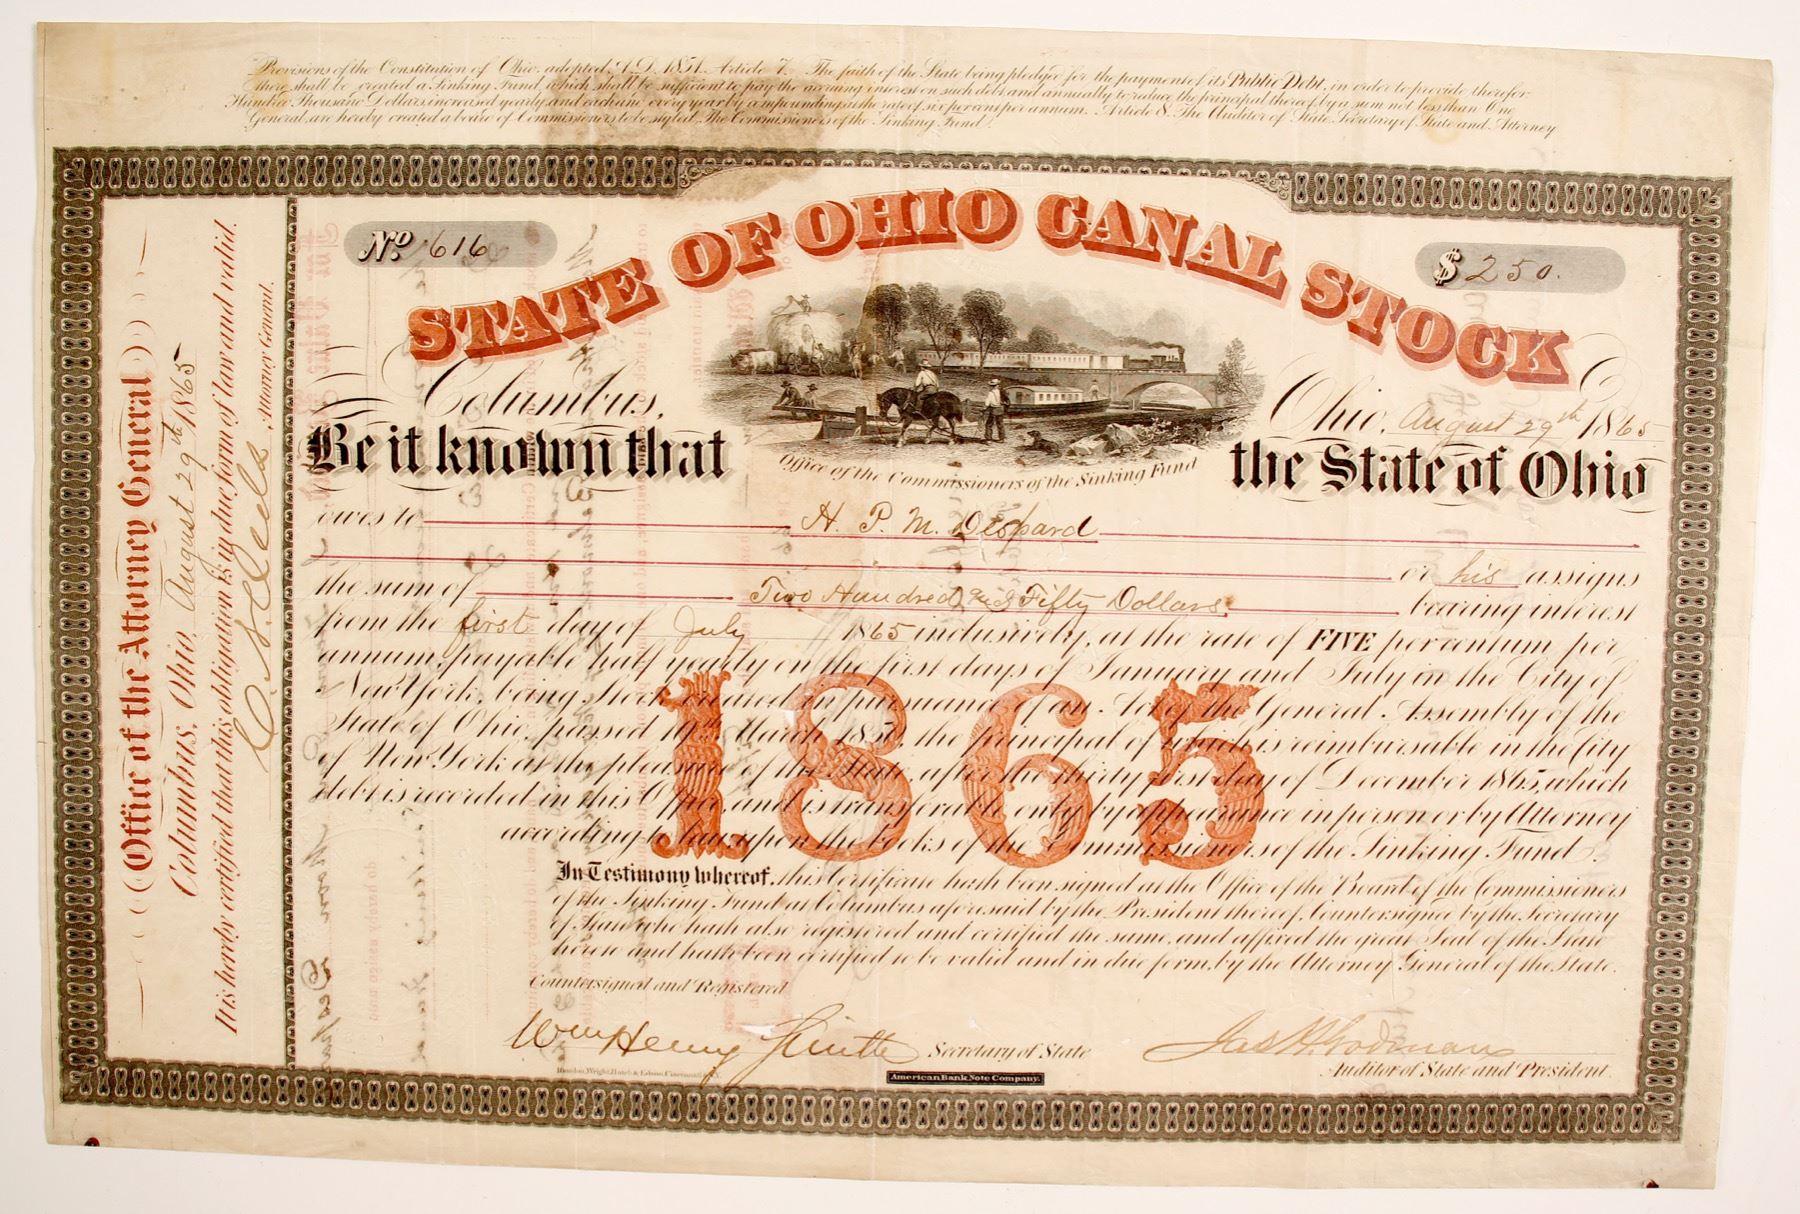 Provisions of the Constitution of Ohio, adopted A.D. 1851. Article 7. The faith of the State being pledged for the payment of its Public Debt, in order to provide therefor
there shall be created a Sinking Fund, which shall be sufficient to pay the accruing interest on such debt and annually to reduce the principal thereof, by a sum not less than One
Hundred Thousand Dollars increased yearly and each and every year by compounding at the rate of six per cent per annum. Article 8. The Auditor of State, Secretary of State and Attorney
General, are hereby created a board of Commissioners to be styled, The Commissioners of the Sinking Fund.
No. 616
STATE OF OHIO CANAL STOCK
$250.
Columbus, Ohio, August 29th 1865
Be it known that the State of Ohio
Office of the Commissioners of the Sinking Fund
owes to H. P. M. Despard
or his assigns
the sum of Two Hundred and Fifty Dollars bearing interest
from the first day of July 1865 inclusively, at the rate of FIVE per centum per
annum, payable half yearly on the first days of January and July in the City of
New York, being Stock created in pursuance of an Act of the General Assembly of the
State of Ohio, passed 19th March 1850, the principal of which is reimbursable in the City
of New York at the pleasure of the State, after the thirty first day of December 1865, which
debt is recorded in this Office, and is transferable only by appearance in person or by Attorney
according to law, upon the books of the Commissioners of the Sinking Fund.
1865
In Testimony whereof, this Certificate hath been signed at the Office of the Board of the Commissioners
of the Sinking Fund at Columbus aforesaid by the President thereof, Countersigned by the Secretary
of State who hath also registered and certified the same, and affixed the great Seal of the State
hereto and hath been certified to be valid and in due form, by the Attorney General of the State.
Countersigned and Registered
Wm Henry Smith Secretary of State
Jas H. Godman
Auditor of State and President.
American Bank Note Company.
Office of the Attorney General
Columbus, Ohio, August 29th 1865
It is hereby certified that this obligation is in due form of law and valid.
Attorney General.